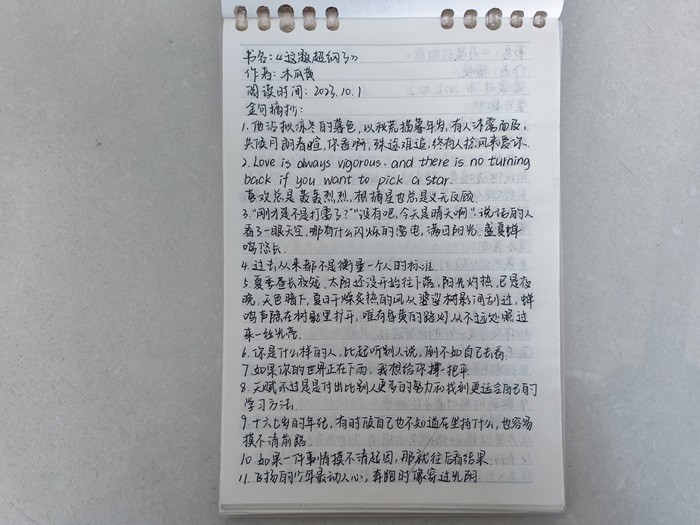 书名:《这题超纲了》
作者:木瓜黄
阅读时间:2023.10.1
金句摘抄:
1.他沾拟冻冬的暮色,以秋荒揽暮年岁,有人沐露而及,
共依月朗春暄,你看啊,殊途难追,终有人拾风来爱你.
2. Love is always vigorous. and there is no turning
back if you want to pick a star.
喜欢总是轰轰烈烈,想摘星也总是义无反顾
3."刚才是不是打雷了?""没有吧,今天是晴天啊".说话的人
看了一眼天空,哪有什么闪烁的雷电,满目阳光,盛夏蝉
鸣悠长.
4.过去从来都不是衡量一个人的标准
5.夏季昼长夜短.太阳还没开始往下落,阳光灼热,已是夜
晚,天色暗下,夏日干燥炙热的风从婆娑树影间刮过,蝉
鸣声隐在树影里打开,唯有昏黄的路灯从不远处照过
来一丝光亮.
6.你是什么样的人,比起听别人说,倒不如自己去看.
7.如果你的世界正在下雨,我想给你撑一把伞
8.天赋不过是是付出比别人更多的努力和找到更适合自己的
学习方法.
9.十六七岁的年纪,有时候自己也不知道在坚持什么,也容易
摸不清前路.
10.如果一件事情摸不清起因,那就往后看结果
11.飞扬的少年最动人心,奔跑时像穿过光阴